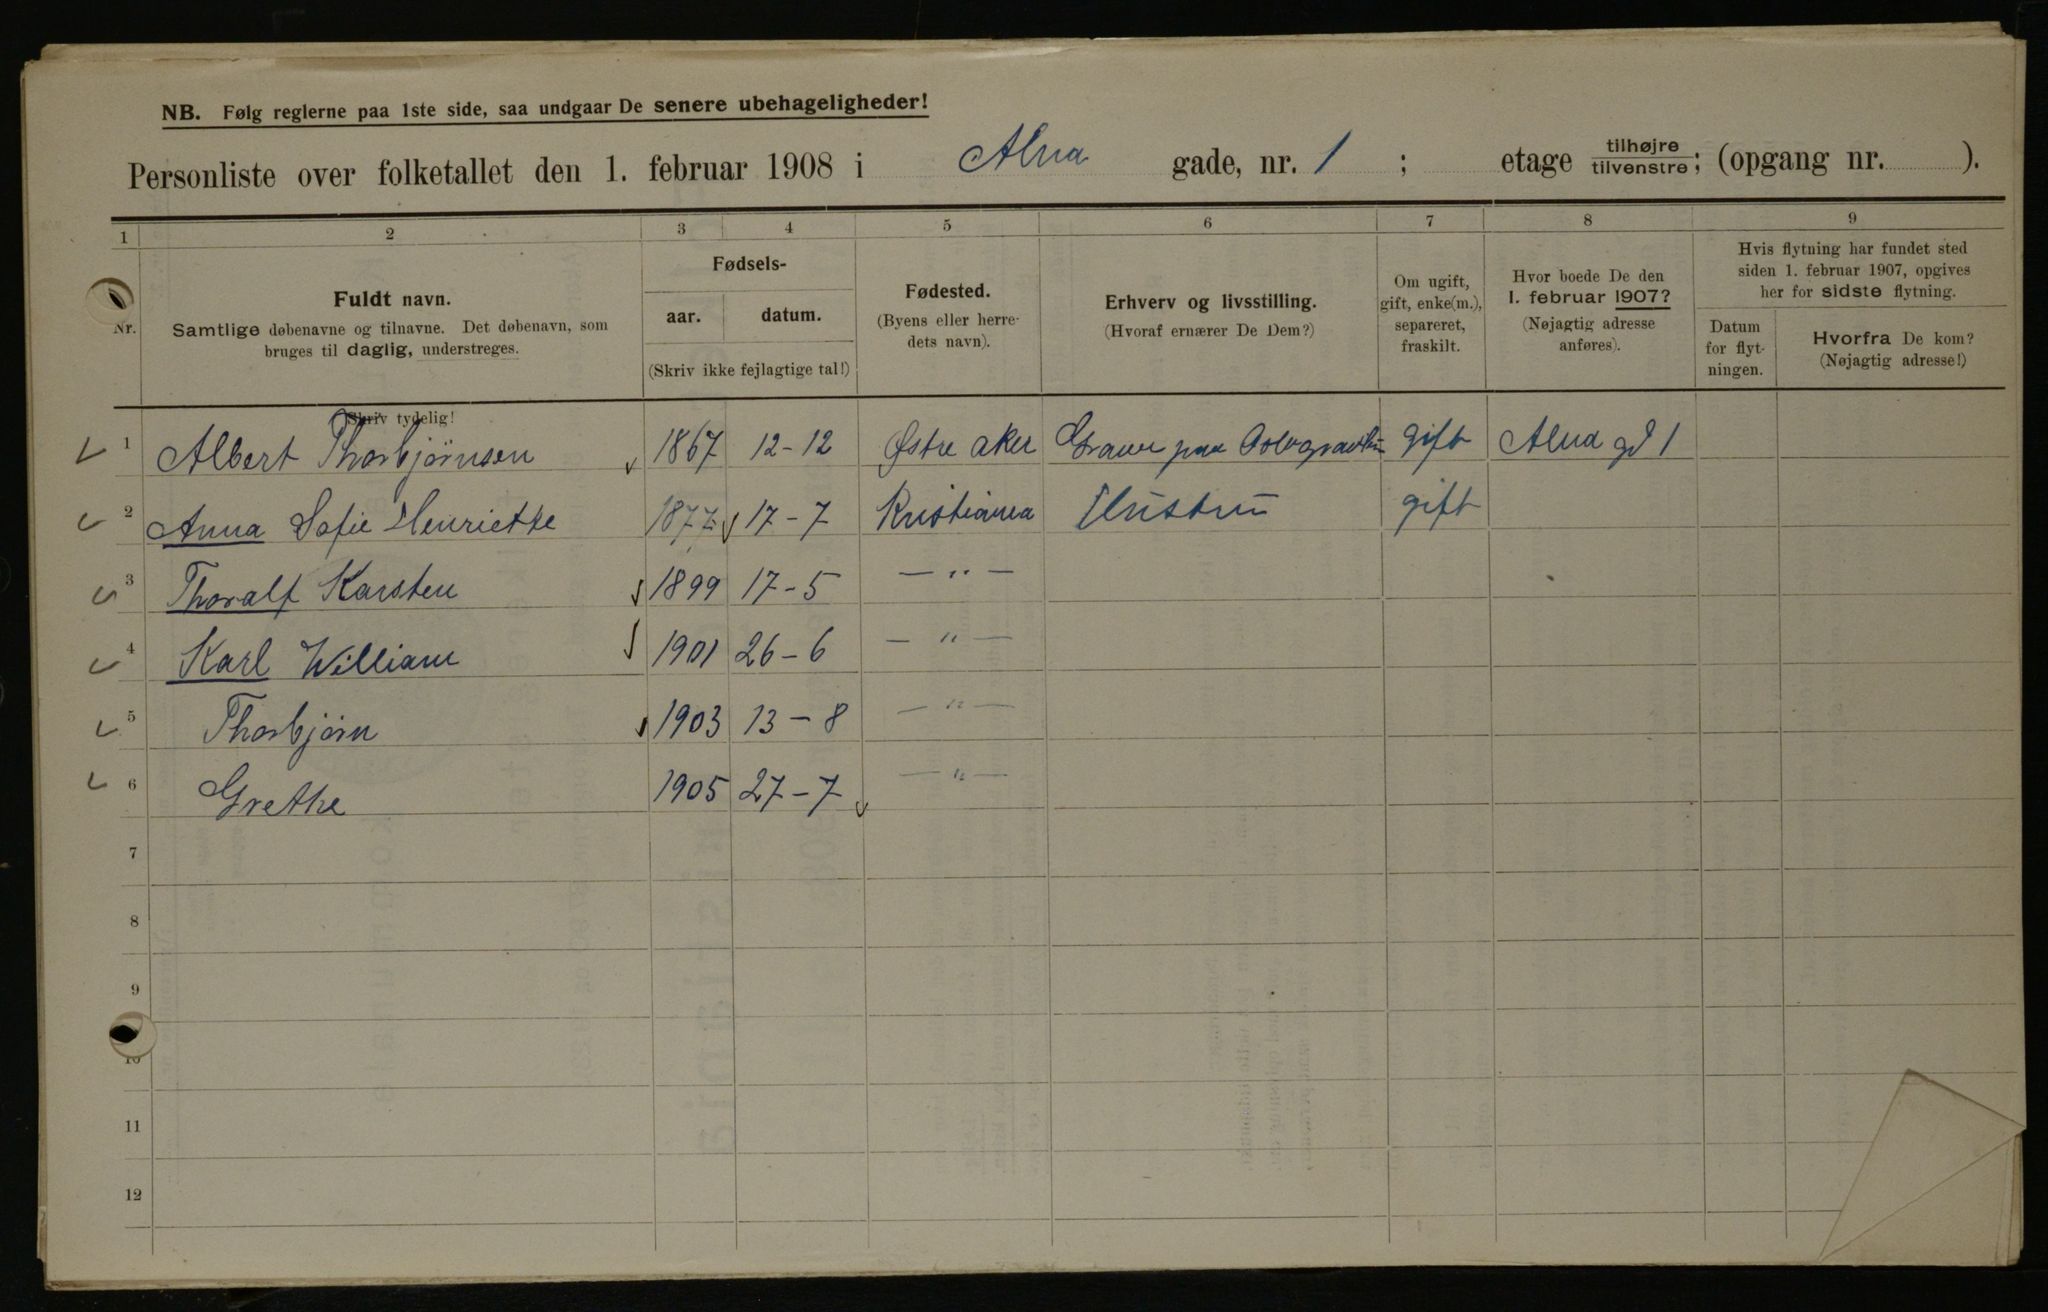 NB. Følg reglerne paa 1ste side, saa undgaar De senere ubehageligheder!
Personliste over folketallet den 1. februar 1908 i Alna gade, nr. 1 ; etage tilhøjre/tilvenstre; (opgang nr. ).
1 2 3 4 5 6 7 8 9
Nr.
Fuldt navn.
Samtlige døbenavne og tilnavne. Det døbenavn, som
bruges til daglig, understreges.
Skriv tydelig!
Fødsels-
aar. datum.
(Skriv ikke fejlagtige tal!)
Fødested.
(Byens eller herre-
dets navn).
Erhverv og livsstilling.
(Hvoraf ernærer De Dem?)
Om ugift,
gift, enke(m.),
separeret,
fraskilt.
Hvor boede De den
1. februar 1907?
(Nøjagtig adresse
anføres).
Hvis flytning har fundet sted
siden 1. februar 1907, opgives
her for sidste flytning.
Datum
for flyt-
ningen.
Hvorfra De kom?
(Nøjagtig adresse!)
1 Albert Thorbjørnsen 1867 12-12 Østre Aker Graver paa gift Alna gd 1
2 Anna Sofie Henriette 1877 17-7 Kristiania Hustru gift
3 Thoralf Karsten 1899 17-5 — " —
4 Karl William 1901 26-6 — " —
5 Thorbjørn 1903 13-8 — " —
6 Grethe 1905 27-7 — " —
7
8
9
10
11
12